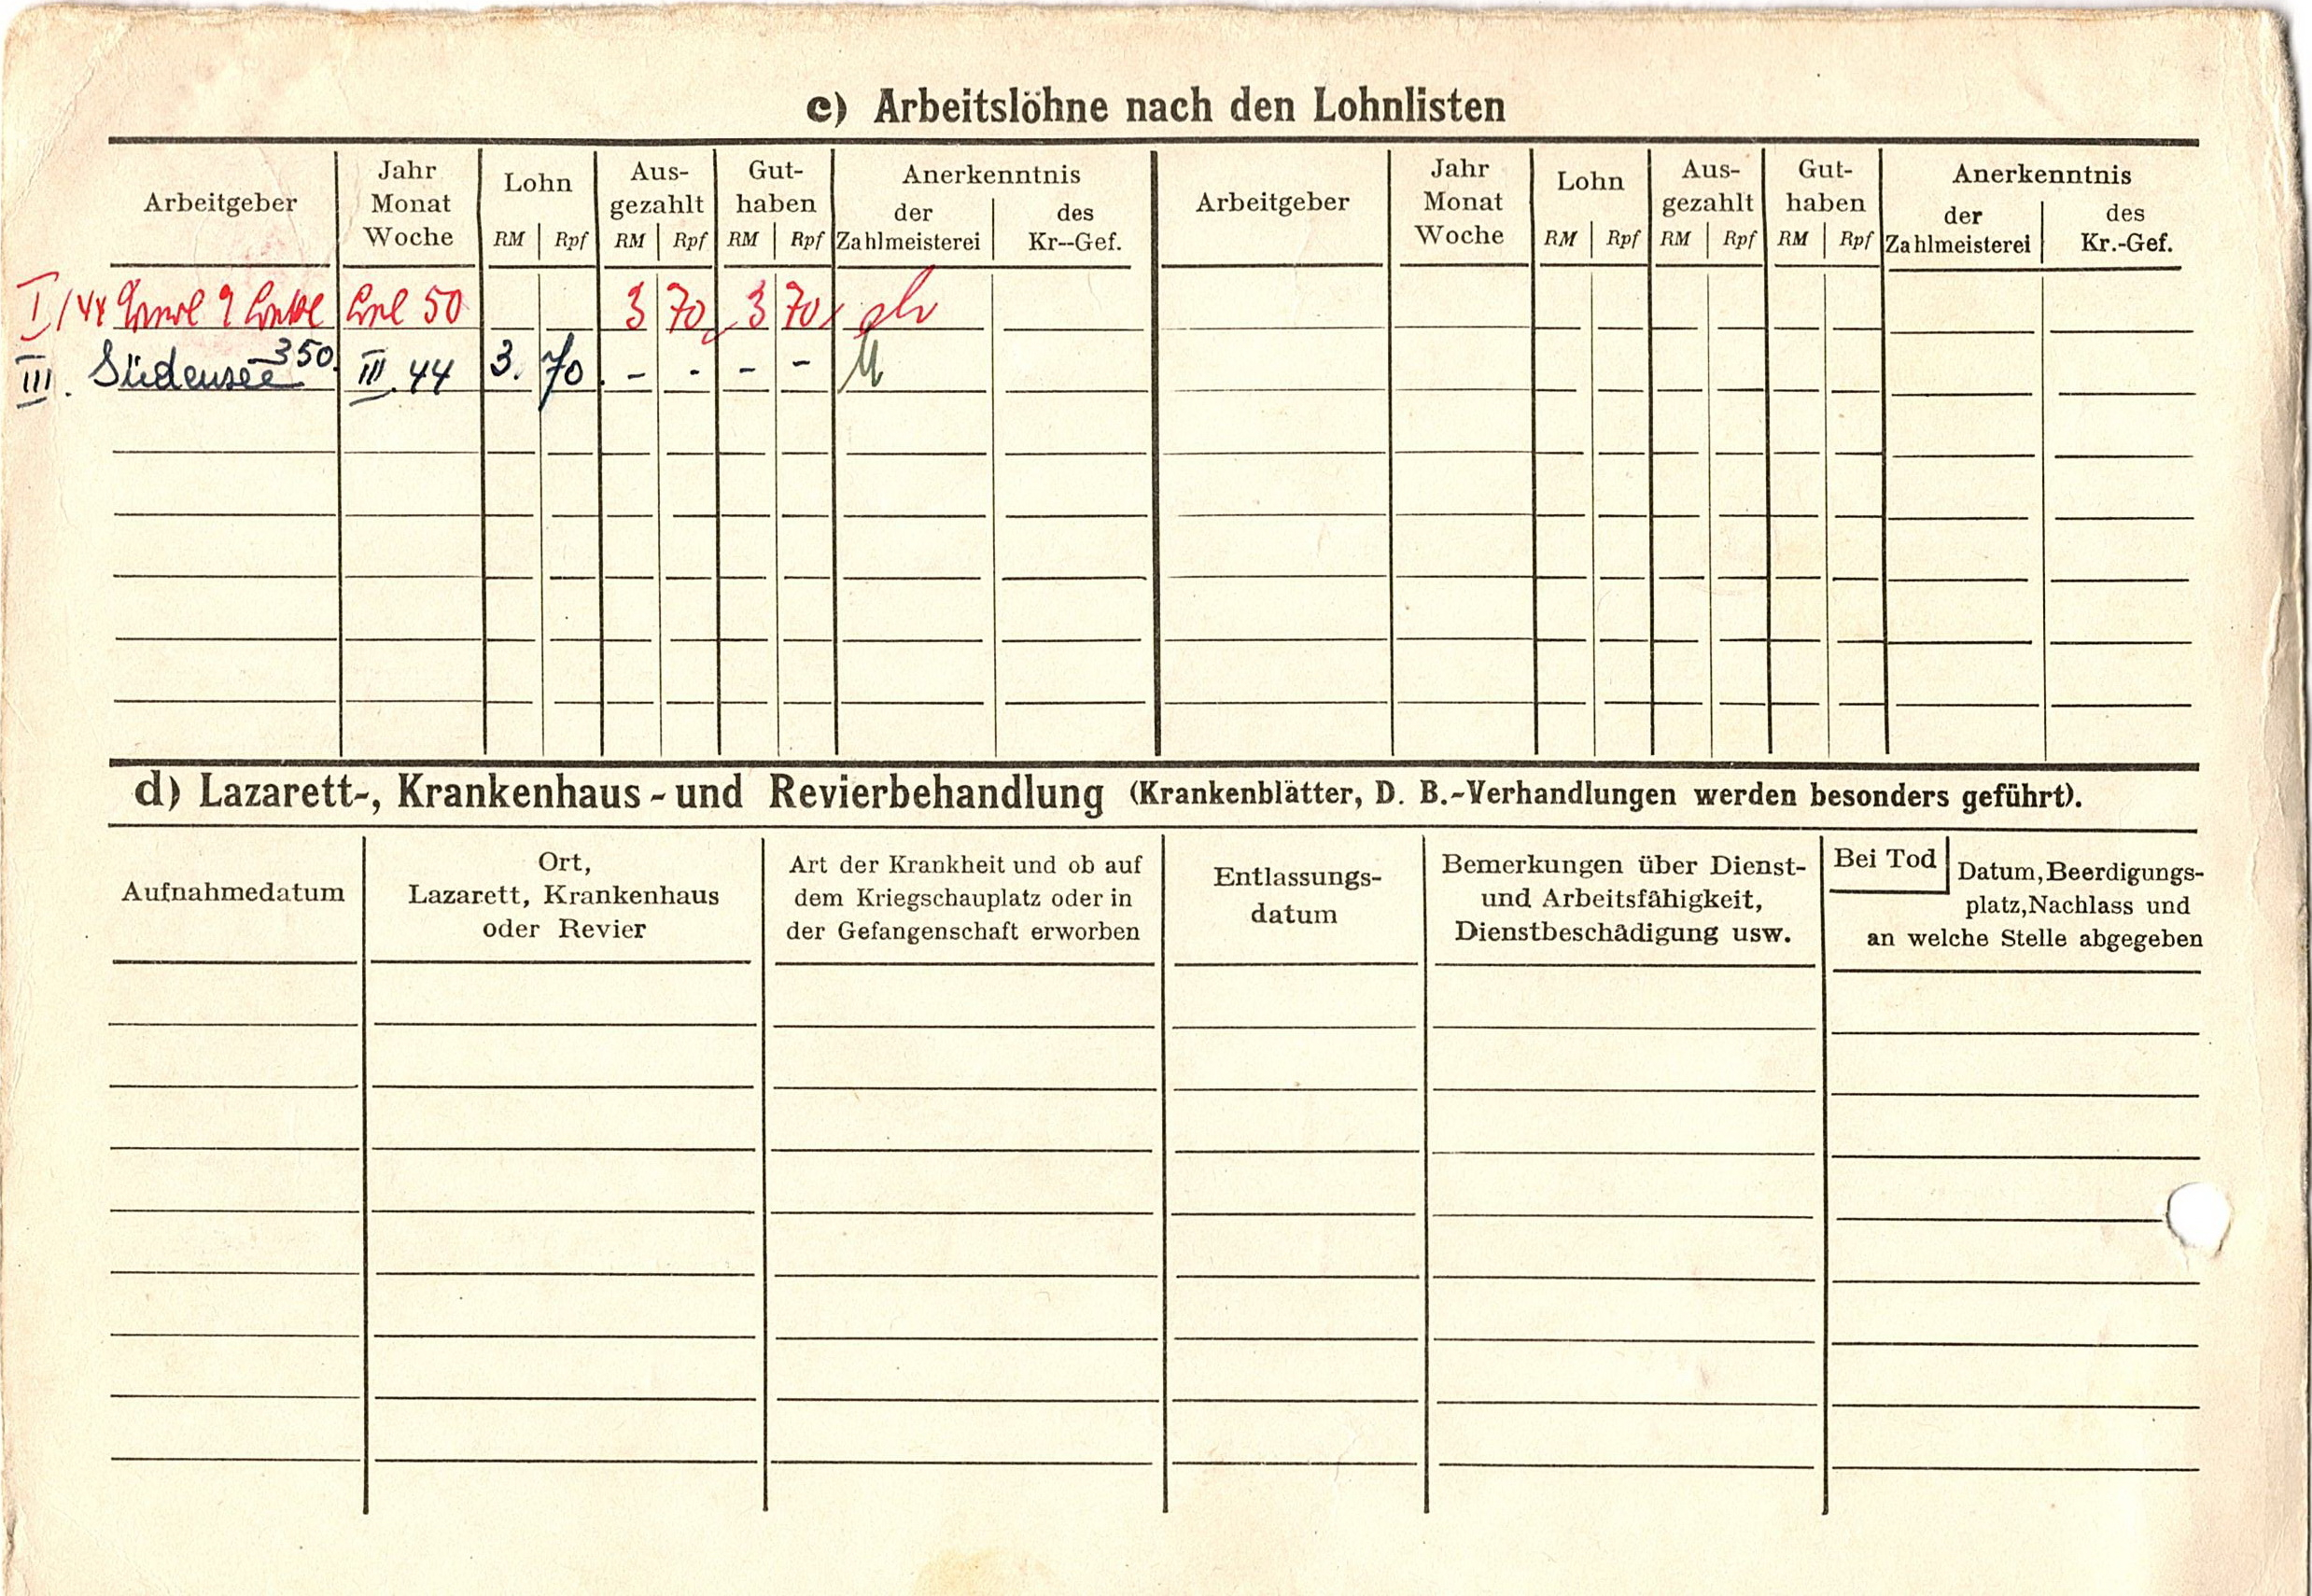 c) Arbeitslöhne nach den Lohnlisten
Arbeitgeber
Jahr
Monat
Woche
Lohn
RM Rpf
Aus-
gezahlt
RM Rpf
Gut-
haben
RM Rpf
Anerkenntnis
der
Zahlmeisterei
des
Kr--Gef.
Arbeitgeber
Jahr
Monat
Woche
Lohn
RM Rpf
Aus-
gezahlt
RM Rpf
Gut-
haben
RM Rpf
Anerkenntnis
der
Zahlmeisterei
des
Kr.-Gef.
I/44 50 3 70 3 70
III. Südensee 350. III. 44 3. 70. - - - -
d) Lazarett-, Krankenhaus - und Revierbehandlung (Krankenblätter, D. B.-Verhandlungen werden besonders geführt).
Aufnahmedatum
Ort,
Lazarett, Krankenhaus
oder Revier
Art der Krankheit und ob auf
dem Kriegschauplatz oder in
der Gefangenschaft erworben
Entlassungs-
datum
Bemerkungen über Dienst-
und Arbeitsfähigkeit,
Dienstbeschädigung usw.
Bei Tod
Datum, Beerdigungs-
platz, Nachlass und
an welche Stelle abgegeben